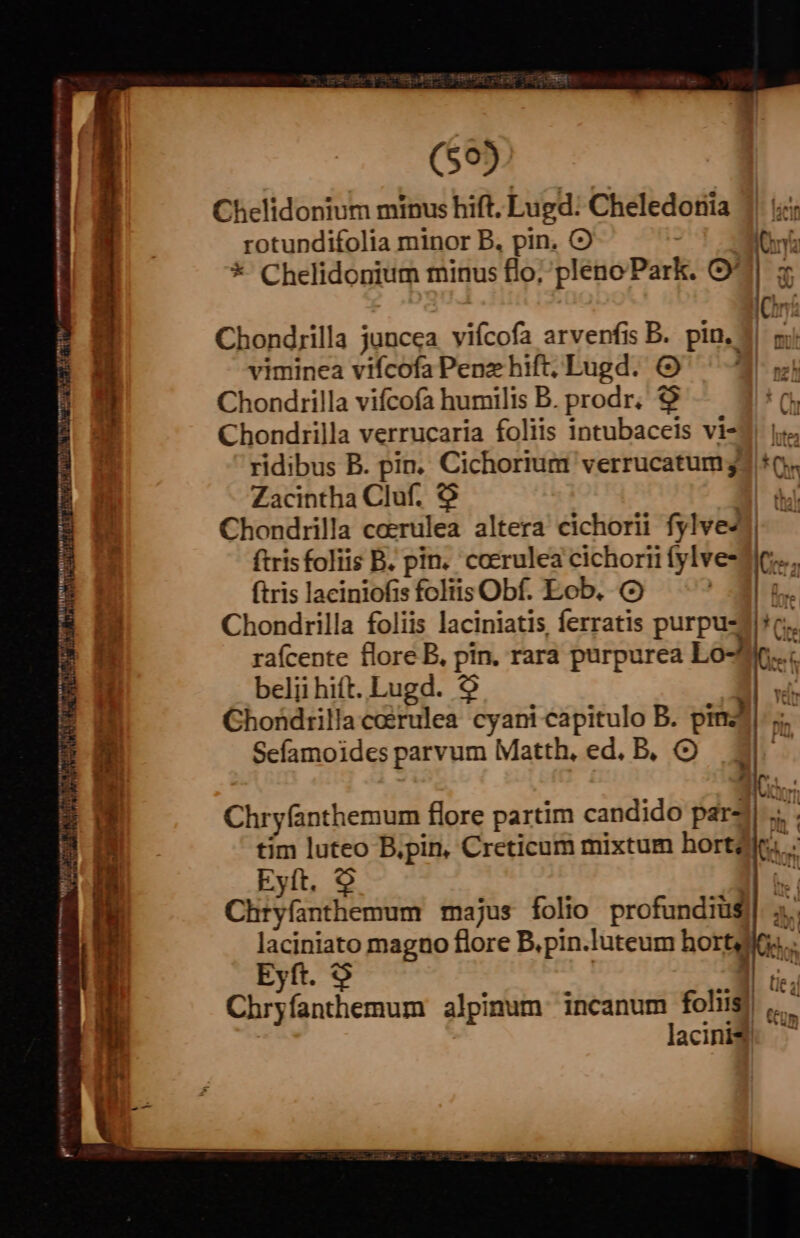 (50)
Chelidonium minus hiſt. Lugd. Cheledonia
rotundifolia minor B. pin. ☉
* Chelidonium minus flo, pleno Park. ☉
Chondrilla juncea viſcoſa arvenſis B. pin.
viminea viſcoſa Penæ hiſt. Lugd. ☉
Chondrilla viſcoſa humilis B. prodr. ♀
Chondrilla verrucaria foliis intubaceis vi-
ridibus B. pin. Cichorium verrucatum,
Zacintha Cluſ. ♀
Chondrilla cœrulea altera cichorii ſylve-
ſtris foliis B. pin. cœrulea cichorii ſylve-
ſtris lacinioſis foliis Obſ. Lob. ☉
Chondrilla foliis laciniatis, ſerratis purpu-
raſcente flore B, pin. rara purpurea Lo-
belii hiſt. Lugd. ♀
Chondrilla cœrulea cyani capitulo B. pin.
Seſamoides parvum Matth, ed. B, ☉
Chryſanthemum flore partim candido par-
tim luteo B,pin, Creticum mixtum hort.
Eyſt. ♀
Chryſanthemum majus folio profundiùs
laciniato magno flore B.pin.luteum hort.
Eyſt. ♀
Chryſanthemum alpinum incanum foliis
lacini-